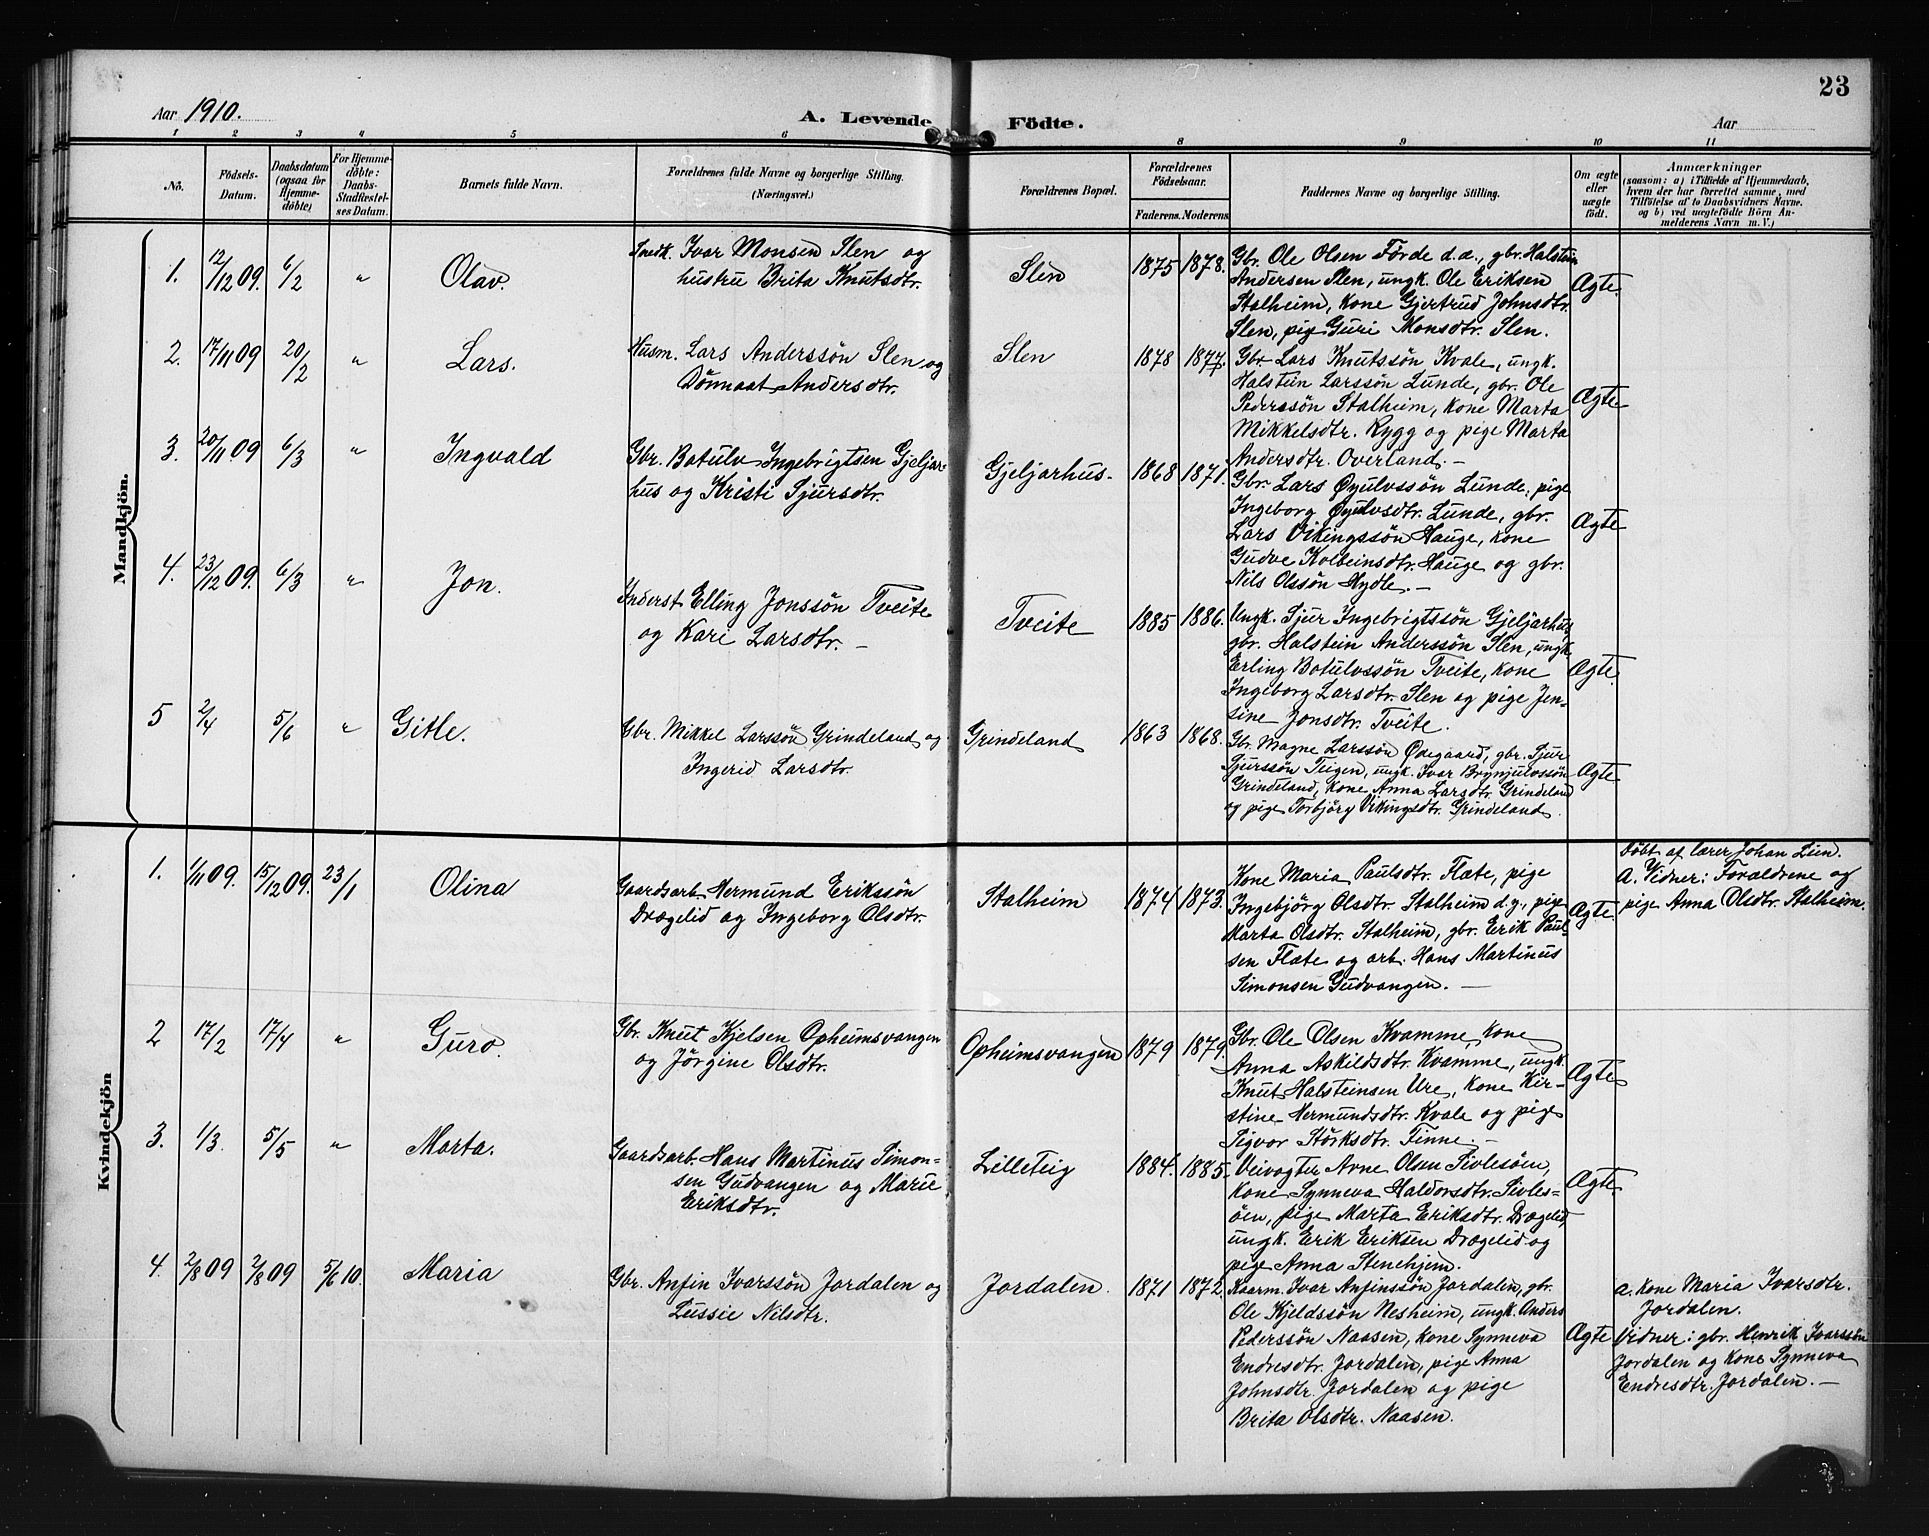 23
Aar 1910.
A. Levende Födte.
Aar
1 2 3 4 5 6 8 9 10 11
No.
Födsels-
Datum.
Daabsdatum
(ogsaa for
Hjemme-
döbte)
For Hjemme-
döbte:
Daabs-
Stadfæstel-
ses Datum.
Barnets fulde Navn.
Forældrenes fulde Navne og borgerlige Stilling.
(Næringsvei.)
Forældrenes Bopæl.
Forældrenes
Födselsaar.
Faderens. Moderens.
Faddernes Navne og borgerlige Stilling.
Om ægte
eller
uægte
födt.
Anmærkninger
(saasom: a) i Tilfælde af Hjemmedaab,
hvem der har forrettet samme, med
Tilföielse af to Daabsvidners Navne.
og b) ved uægtefödte Börn An-
melderens Navn m. V.)
Mandkjön.
1. 12/12 09. 6/2 " Olav.
Snedk. Ivar Monsen Slen og
hustru Brita Knutsdtr.
Slen 1875 1878.
Gbr. Ole Olsen Förde d.a., gbr. Halstein
Andersen Slen, ungk. Ole Eriksen
Stalheim, kone Gjertrud Johnsdtr.
Slen, pige Guri Monsdtr. Slen.
Ægte.
2. 17/11 09 20/2 " Lars.
Husm. Lars Anderssön Slen og
Dönnaat Andersdtr.
Slen 1878 1877.
Gbr. Lars Knutssön Kvale, ungk.
Halstein Larssön Lunde, gbr. Ole
Pederssön Stalheim, kone Marta
Mikkelsdtr. Rygg og pige Marta
Andersdtr. Overland. —
Ægte.
3. 20/11 09 6/3 " Ingvald
Gbr. Botulv Ingebrigtsen Gjeljar-
hus og Kristi Sjursdtr.
Gjeljarhus- 1868 1871.
Gbr. Lars Öyulvssön Lunde, pige
Ingeborg Öyulvsdtr. Lunde, gbr.
Lars Vikingssön Hauge, kone
Gudve Kolbeinsdtr. Hauge og gbr.
Nils Olssön Hydle. —
Ægte
4. 23/12 09. 6/3 " Jon.
Inderst Elling Jonssön Tveite
og Kari Larsdtr. —
Tveite 1885 1886.
Ungk. Sjur Ingebrigtssön Gjeljarhus,
gbr. Halstein Anderssön Slen, ungk.
Erling Botulvssön Tveite, kone
Ingeborg Larsdtr. Slen og pige Jen-
sine Jonsdtr. Tveite.
Ægte.
5 2/4 5/6 " Gitle.
Gbr. Mikkel Larssön Grindeland og
Ingerid Larsdtr.
Grindeland 1863 1868.
Gbr. Magne Larssön Ödegaard, gbr. Sjur
Sjurssön Teigen, ungk. Ivar Brynjulvssön
Grindeland, kone Anna Larsdtr. Grindeland
og pige Torbjörg Vikingsdtr. Grindeland.
Ægte
Kvindekjön
1. 1/11 09. 15/12 09. 23/1 Olina
Gaardsarb. Hermund Erikssön
Drægelid og Ingeborg Olsdtr.
Stalheim 1874 1873.
Kone Maria Paulsdtr. Flæte, pige
Ingebjörg Olsdtr. Stalheim d.y., pige
Marta Olsdtr. Stalheim, gbr. Erik Paul-
sen Flæte og arb. Hans Martinus
Simonsen Gudvangen. —
Ægte.
Döbt af lærer Johan Lün.
A. Vidner: Forældrene og
pige Anna Olsdtr. Stalheim.
2 17/2 17/4 " Guro.
Gbr. Knut Kjelsen Opheimsvangen
og Jörgine Olsdtr.
Opheimsvangen 1879 1879.
Gbr. Ole Olsen Kvamme, kone
Anna Askildsdtr. Kvamme, ungk.
Knut Halsteinsen Ure, kone Kir-
stine Hermundsdtr. Kvale og pige
Sigvor Störksdtr. Finne. —
Ægte
3. 1/3 5/5 " Marta.
Gaardsarb. Hans Martinus Simon-
sen Gudvangen og Marie
Eriksdtr.
Lilleteig 1884. 1885.
Veivogter Arne Olsen Sivlesöen,
kone Synneva Haldorsdtr. Sivles-
öen, pige Marta Eriksdtr. Drægelid,
ungk. Erik Eriksen Drægelid og
pige Anna Stenehjem.
Ægte.
4. 2/8 09 2/8 09 5/6 10. Maria
Gbr. Anfin Ivarssön Jordalen og
Lussie Nilsdtr.
Jordalen. 1871 1872.
Kaarm. Ivar Anfinssön Jordalen, gbr.
Ole Kjeldssön Nesheim, ungk. Anders
Pederssön Naasen, kone Synneva
Endresdtr. Jordalen, pige Anna
Johnsdtr. Jordalen og pige
Brita Olsdtr. Naasen.
Ægte
a. Kone Maria Ivarsdtr.
Jordalen.
Vidner: gbr. Henrik Ivarssön
Jordalen og kone Synneva
Endresdtr. Jordalen. —